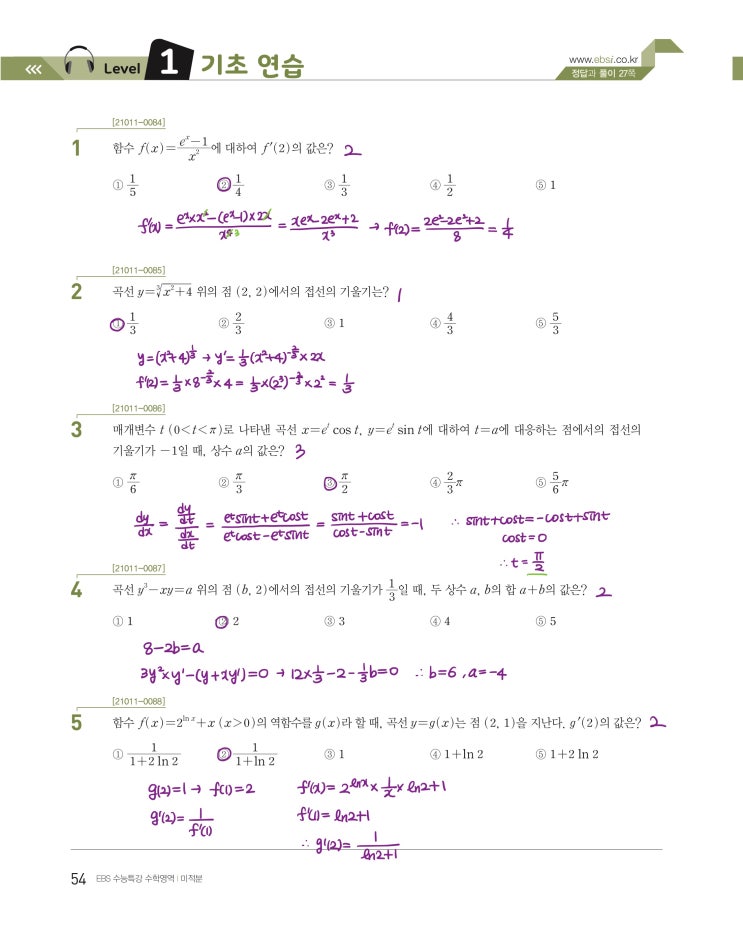 <<<
Level 1 기초 연습
www.ebsi.co.kr
정답과 풀이 27쪽
[21011-0084]
1 함수 f(x)=(e^x-1)/x^2에 대하여 f'(2)의 값은? 2
① 1/5 ② 1/4 ③ 1/3 ④ 1/2 ⑤ 1
f'(x)=(e^x×x^2-(e^x-1)×2x)/x^4 3=(xe^x-2e^x+2)/x^3 → f'(2)=(2e^2-2e^2+2)/8=1/4
[21011-0085]
2 곡선 y=∛(x^2+4) 위의 점 (2, 2)에서의 접선의 기울기는? 1
① 1/3 ② 2/3 ③ 1 ④ 4/3 ⑤ 5/3
y=(x^2+4)^(1/3) → y'=1/3(x^2+4)^(-2/3)×2x
f'(2)=1/3×8^(-2/3)×4=1/3×(2^3)^(-2/3)×2^2=1/3
[21011-0086]
3 매개변수 t (0<t<π)로 나타낸 곡선 x=e^t cos t, y=e^t sin t에 대하여 t=a에 대응하는 점에서의 접선의
기울기가 -1일 때, 상수 a의 값은? 3
① π/6 ② π/3 ③ π/2 ④ 2/3π ⑤ 5/6π
dy/dx=(dy/dt)/(dx/dt)=(e^t sint+e^t cost)/(e^t cost-e^t sint)=(sint+cost)/(cost-sint)=-1 ∴ sint+cost=-cost+sint
cost=0
∴ t=π/2
[21011-0087]
4 곡선 y^3-xy=a 위의 점 (b, 2)에서의 접선의 기울기가 1/3일 때, 두 상수 a, b의 합 a+b의 값은? 2
① 1 ② 2 ③ 3 ④ 4 ⑤ 5
8-2b=a
3y^2×y'-(y+xy')=0 → 12×1/3-2-1/3b=0 ∴ b=6, a=-4
[21011-0088]
5 함수 f(x)=2^(ln x)+x (x>0)의 역함수를 g(x)라 할 때, 곡선 y=g(x)는 점 (2, 1)을 지난다. g'(2)의 값은? 2
① 1/(1+2 ln 2) ② 1/(1+ln 2) ③ 1 ④ 1+ln 2 ⑤ 1+2 ln 2
g(2)=1 → f(1)=2 f'(x)=2^(lnx)×1/x×ln2+1
g'(2)=1/f'(1) f'(1)=ln2+1
∴ g'(2)=1/(ln2+1)
54 EBS 수능특강 수학영역 | 미적분